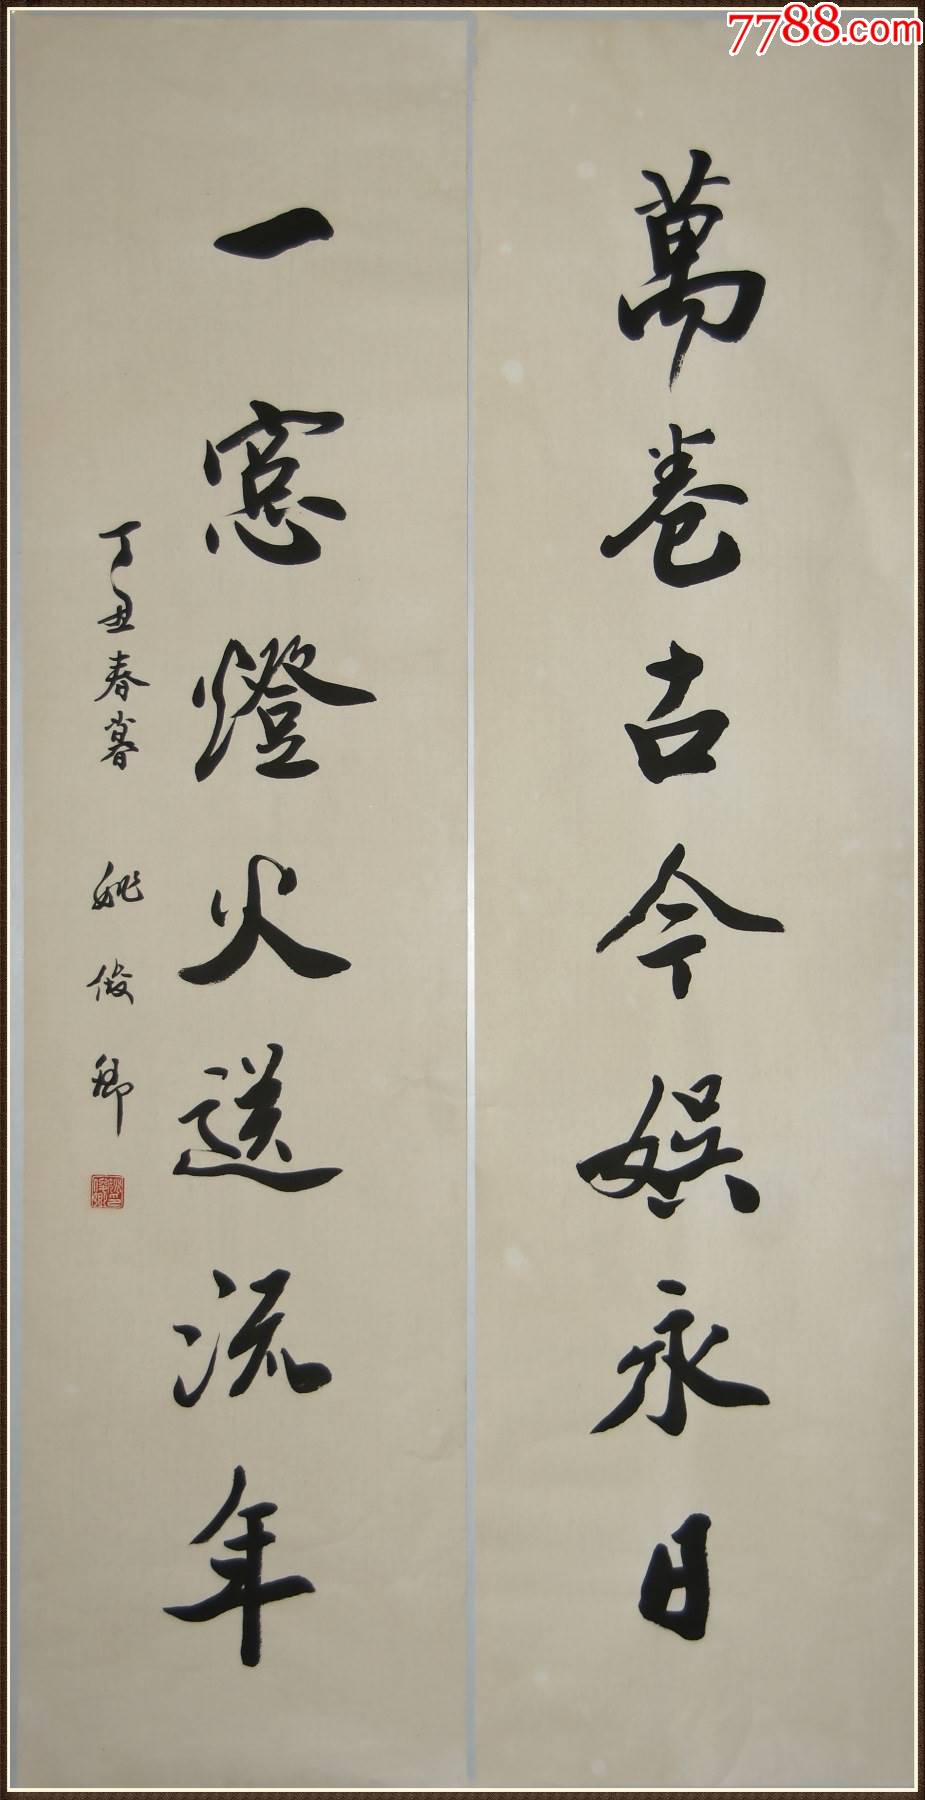 7788.com
萬卷古今娛永日
一窓燈火送流年
丁丑春暮 姚俊卿